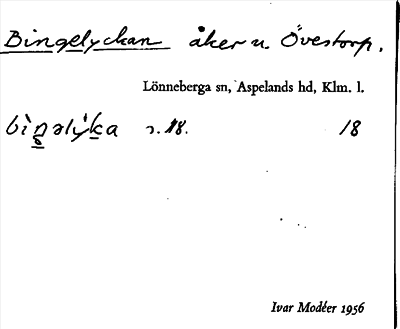 Bingelyckan åker u. Övestorp.
Lönneberga sn, Aspelands hd, Klm. l.
bìŋəlýka s. 18. 18
Ivar Modéer 1956